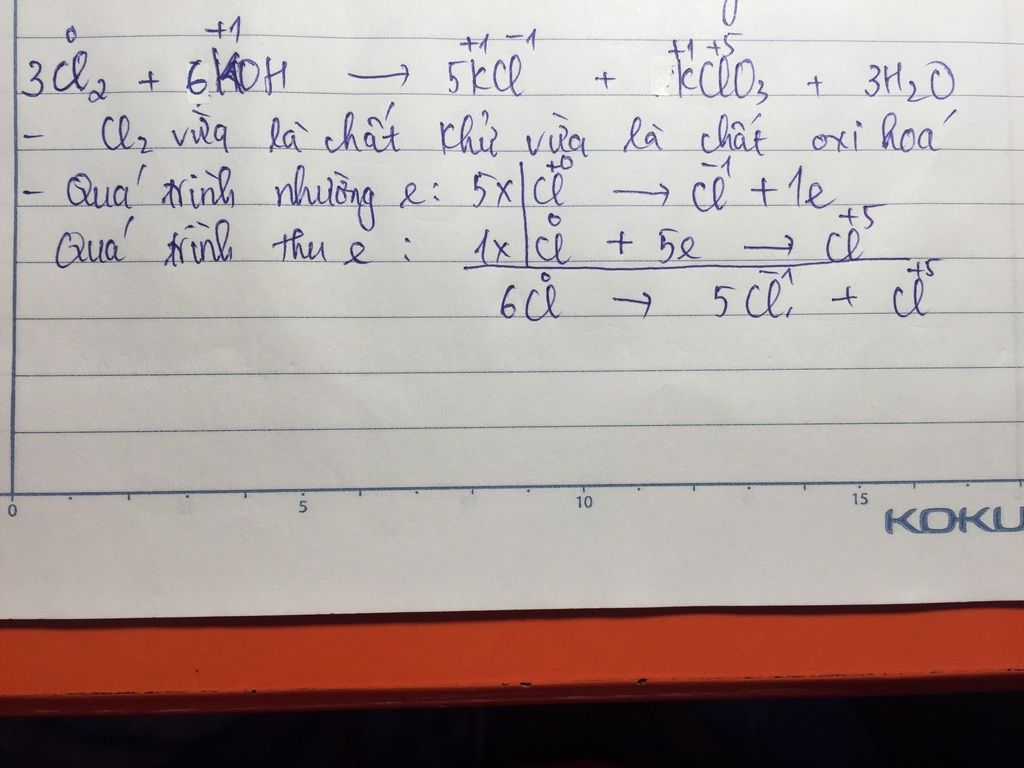 3Cl⁰₂ + 6K⁺¹OH → 5K⁺¹Cl⁻¹ + K⁺¹Cl⁺⁵O₃ + 3H₂O
- Cl₂ vừa là chất khử vừa là chất oxi hoá
- Quá trình nhường e: 5x | Cl⁺⁰ → Cl⁻¹ + 1e
Quá trình thu e : 1x | Cl⁰ + 5e → Cl⁺⁵
6Cl⁰ → 5Cl⁻¹ + Cl⁺⁵
0 5 10 15
KOKU